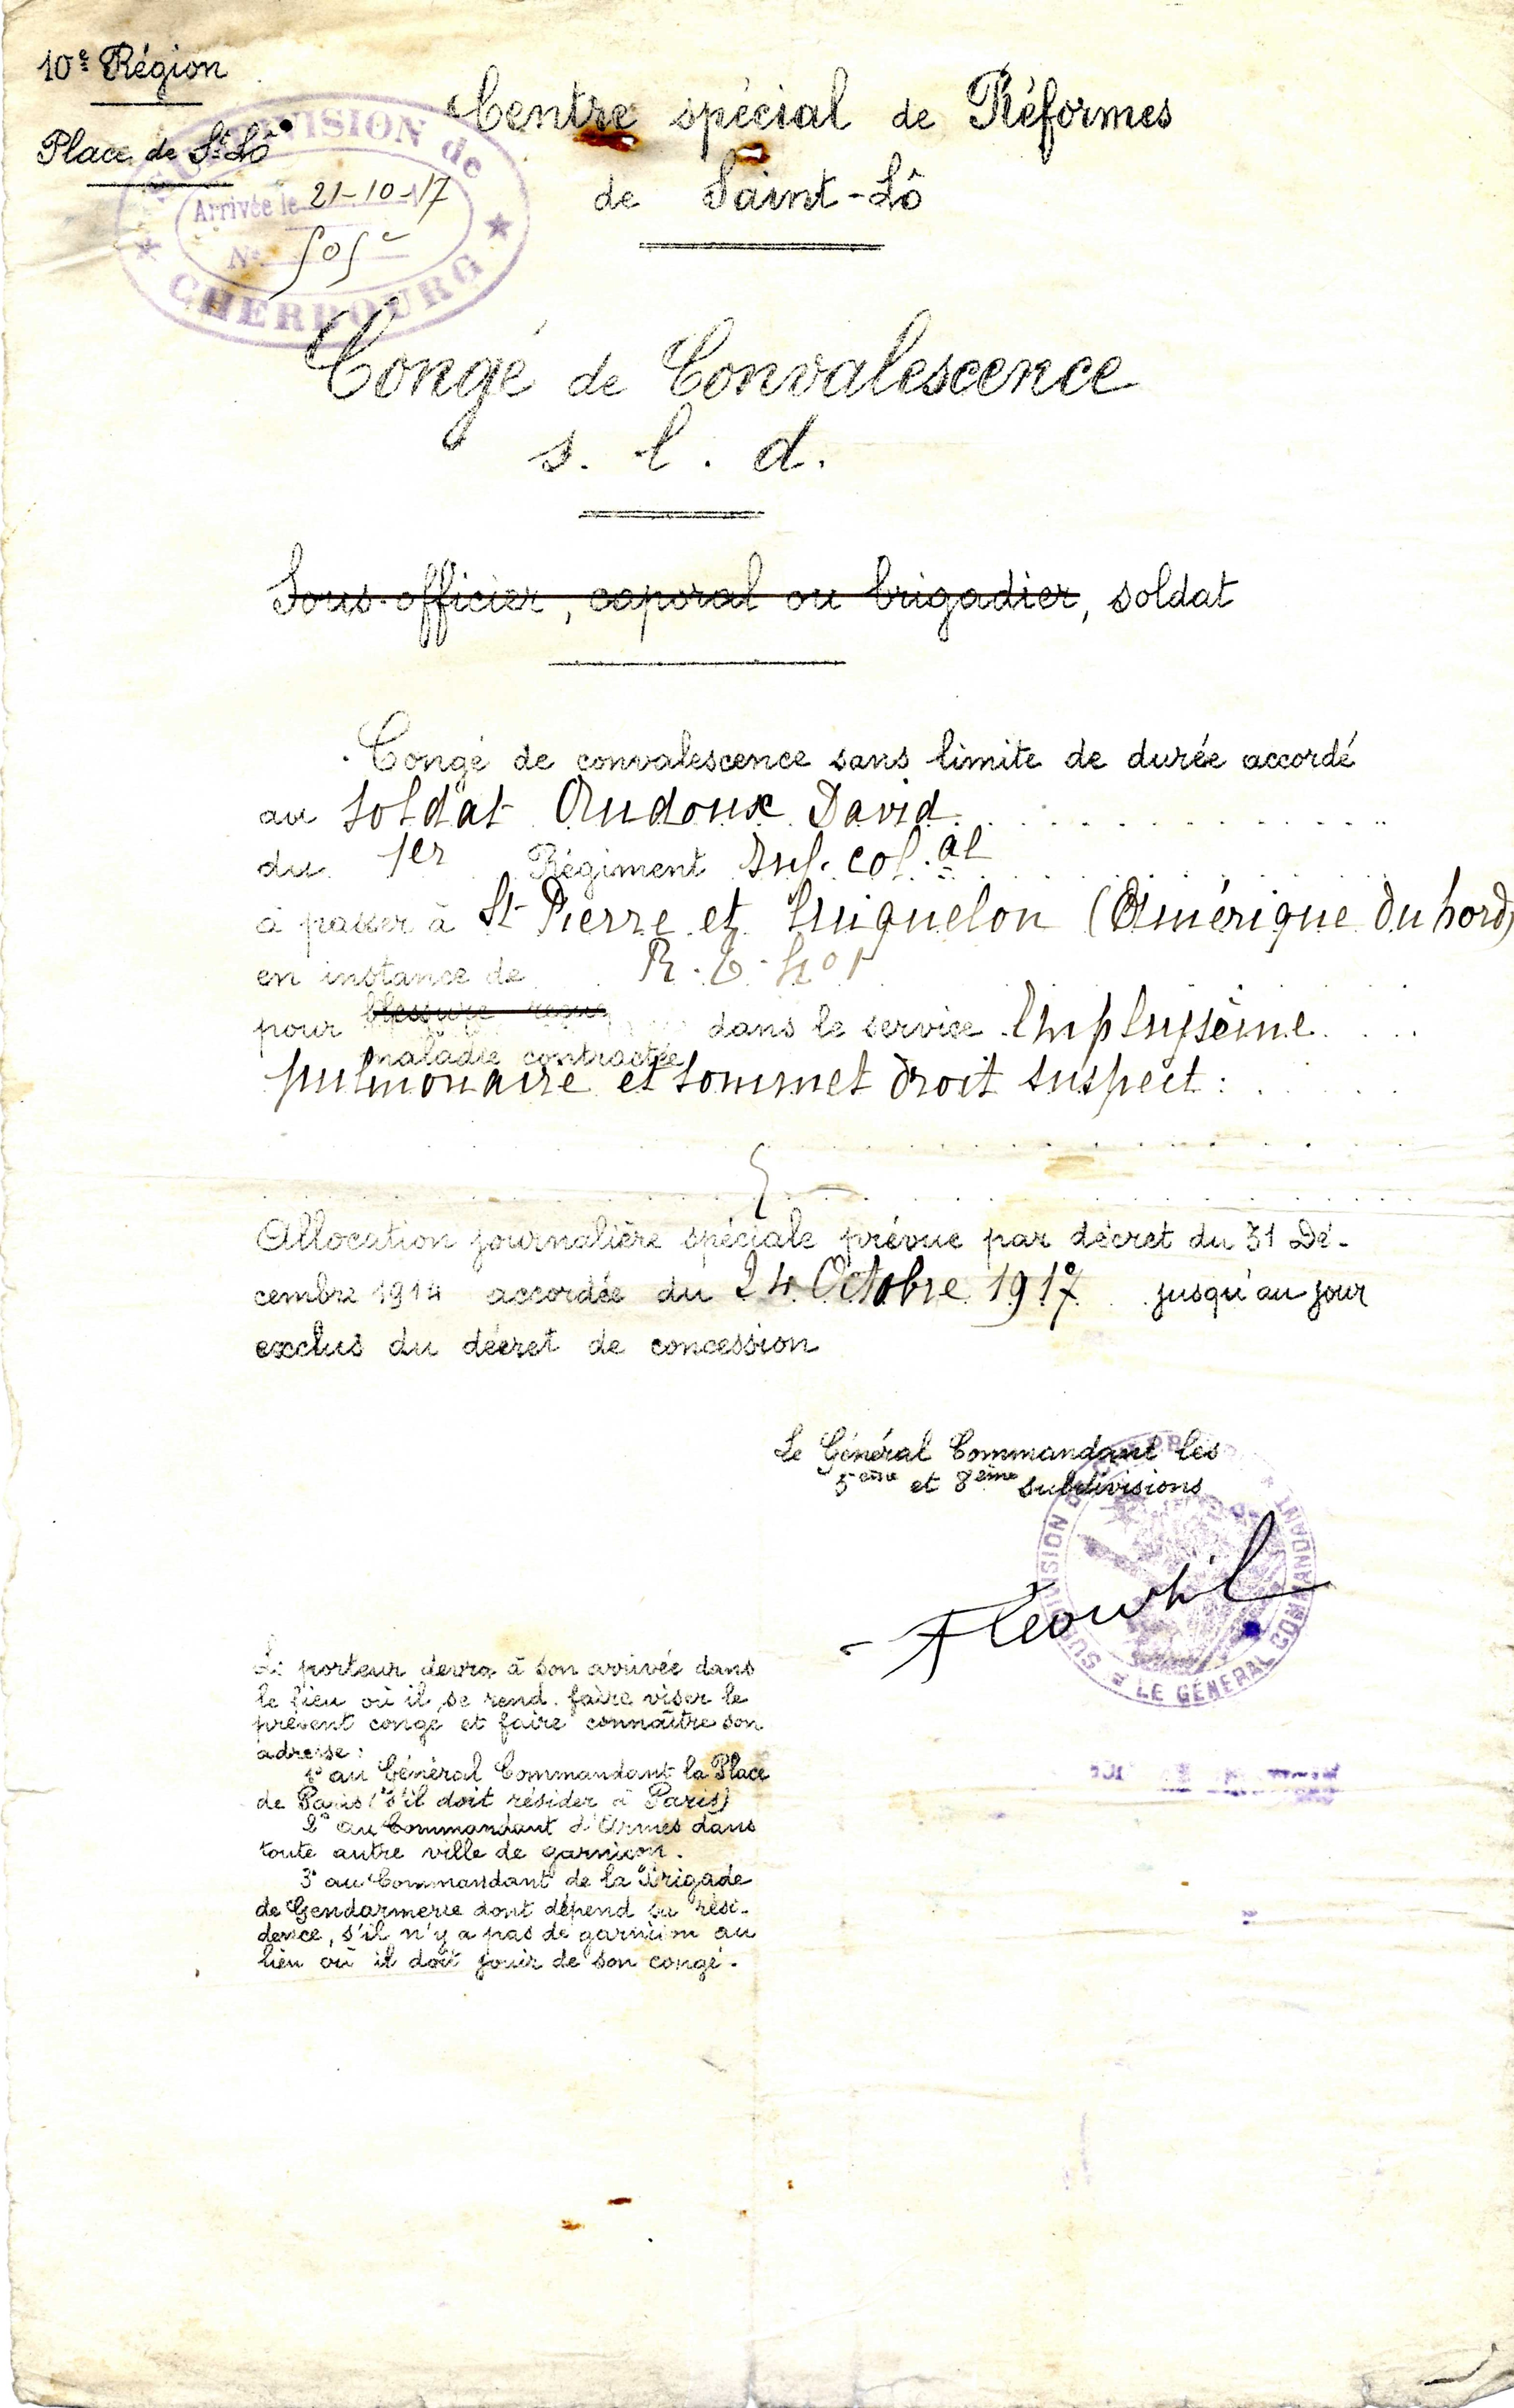 10e Région
Place de St Lô
SUBDIVISION de
Arrivée le 21-10-17
No 505
CHERBOURG
Centre spécial de Réformes
de Saint-Lô
Congé de Convalescence
s. l. d.
Sous-officier, caporal ou brigadier, soldat
Congé de convalescence sans limite de durée accordé
au soldat Audoux David
du 1er Régiment Inf. col.al
à passer à St Pierre et Miquelon (Amérique du Nord)
en instance de R. T. No 1
pour blessure reçue dans le service Emphysème
maladie contractée
pulmonaire et sommet droit suspect :
Allocation journalière spéciale prévue par décret du 31 Dé-
cembre 1914 accordée du 24 Octobre 1917 jusqu'au jour
exclus du décret de concession
Le Général Commandant les
5ème et 8ème subdivisions
SUBDIVISION DE
LE GÉNÉRAL COMMANDANT
Le porteur devra à son arrivée dans
le lieu où il se rend faire viser le
présent congé et faire connaître son
adresse :
1° au Général Commandant la Place
de Paris (s'il doit résider à Paris)
2° au Commandant d'Armes dans
toute autre ville de garnison.
3° au Commandant de la Brigade
de Gendarmerie dont dépend sa rési-
dence, s'il n'y a pas de garnison au
lieu où il doit jouir de son congé.